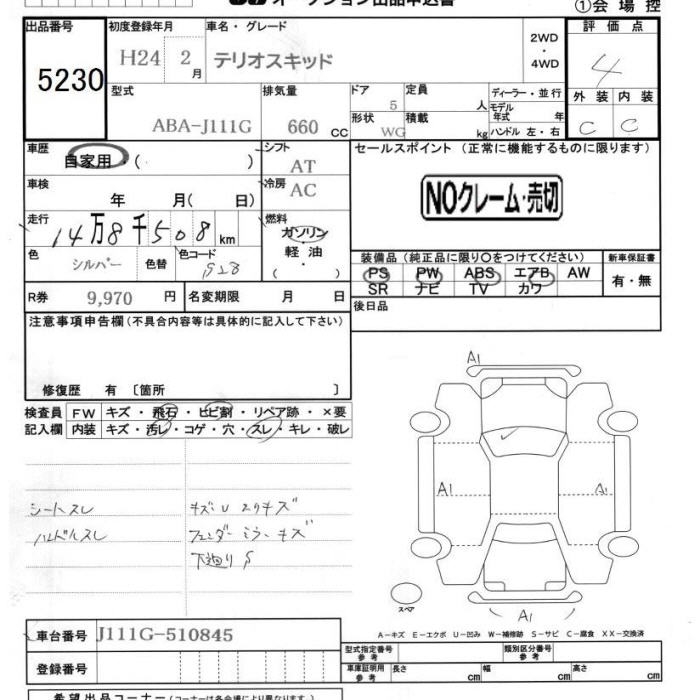 オークション出品申込書
①会場控
出品番号 初度登録年月 車名・グレード 評価点
5230 H24 2月 テリオスキッド 2WD・4WD 4
型式 排気量 ドア 定員 ディーラー・並行 外装 内装
ABA-J111G 660 CC 5 人 モデル年式 年 C C
形状 積載
WG kg ハンドル 左・右
車歴 シフト セールスポイント (正常に機能するものに限ります)
自家用・( ) AT
車検 冷房
年 月( 日) AC NOクレーム・売切
走行 燃料
14万8千508 km ガソリン・軽油
色 色替 色コード 装備品 (純正品に限り○をつけてください) 新車保証書
シルバー S28 PS PW ABS エアB AW 有・無
SR ナビ TV カワ
R券 9,970 円 名変期限 月 日 後日品
注意事項申告欄 (不具合内容等は具体的に記入して下さい)
修復歴 有 〔箇所 〕
検査員 FW キズ・飛石・ヒビ割・リペア跡・×要
記入欄 内装 キズ・汚レ・コゲ・穴・スレ・キレ・破レ
A1
A1 A1
シートスレ キズU エクキズ
ハンドルスレ フェンダーミラーキズ
下廻りS
スペア A1
A-キズ E-エクボ U-凹み W-補修跡 S-サビ C-腐食 XX-交換済
車台番号 J111G-510845
型式指定番号 参考 類別区分番号 参考
登録番号 車庫証明用 参考 長さ cm 幅 cm 高さ cm
希望出品コーナー (コーナーは各会場により異なります。)